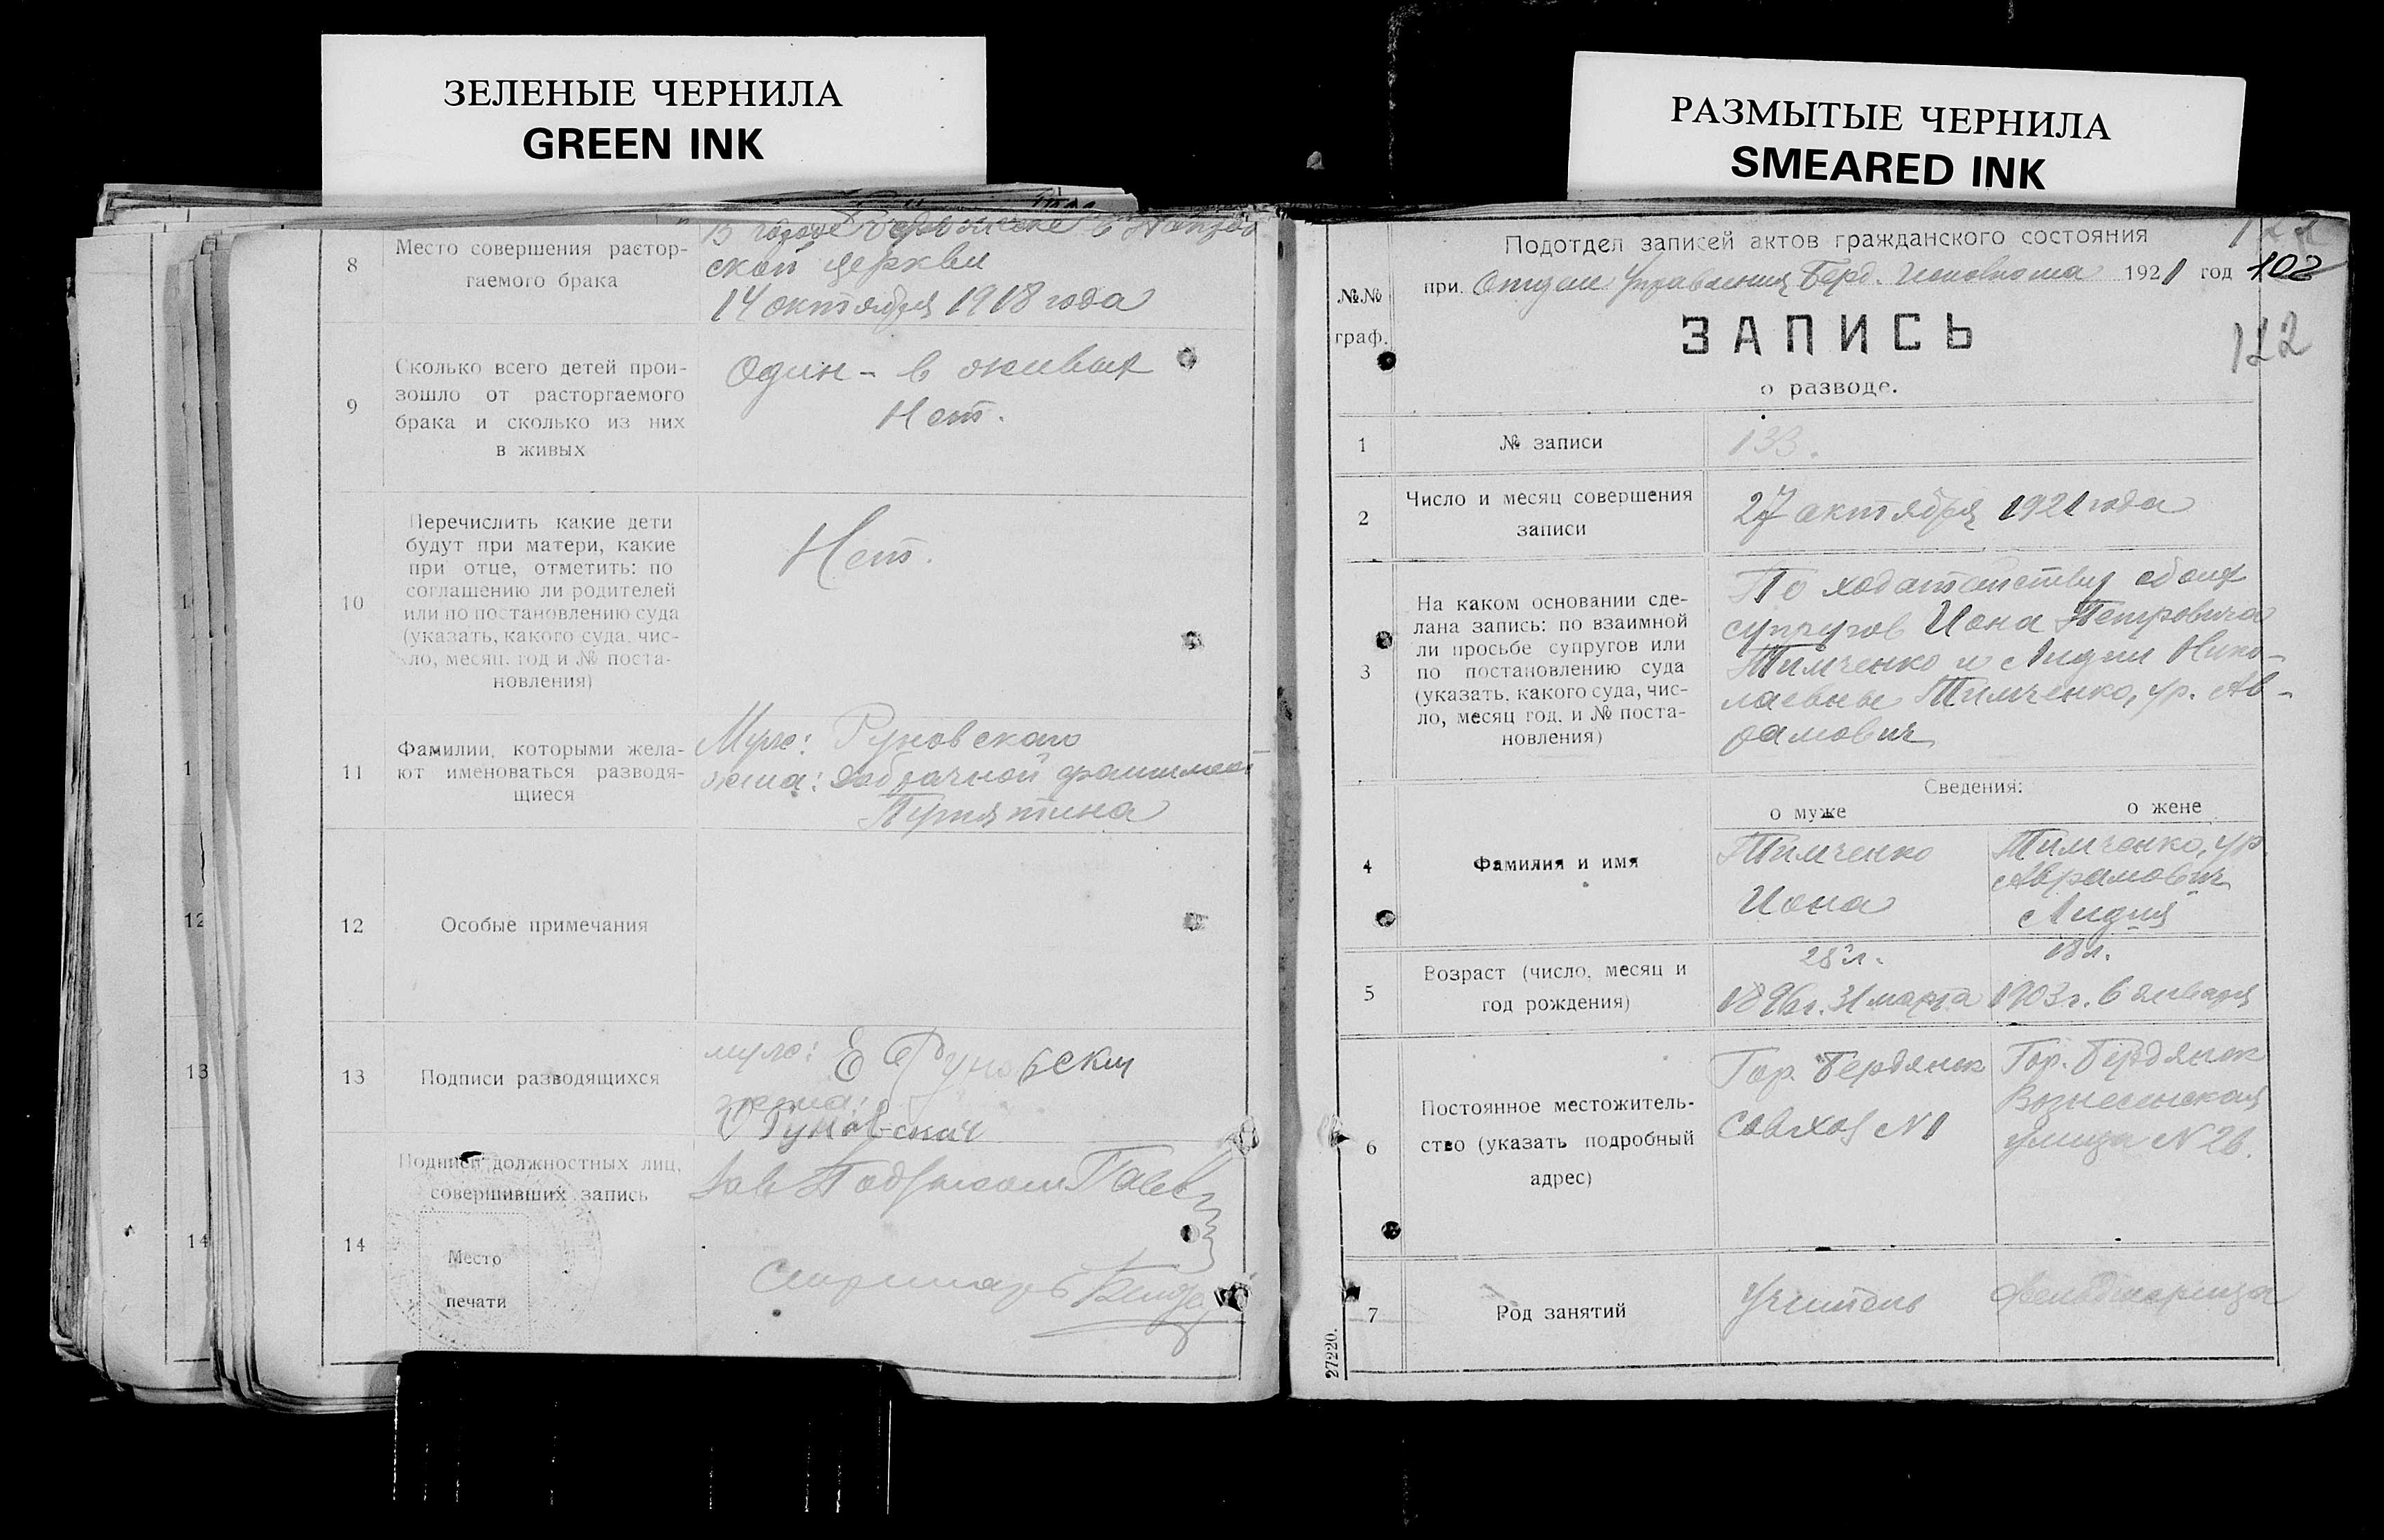 ЗЕЛЕНЫЕ ЧЕРНИЛА
GREEN INK
РАЗМЫТЫЕ ЧЕРНИЛА
SMEARED INK
8
Место совершения растор-
гаемого брака
В городе Бердянске в
ской церкви
14 октября 1918 года
9
Сколько всего детей прои-
зошло от расторгаемого
брака и сколько из них
в живых
Один - в живых
Нет.
10
Перечислить какие дети
будут при матери, какие
при отце, отметить: по
соглашению ли родителей
или по постановлению суда
(указать, какого суда, чис-
ло, месяц, год и № поста-
новления)
Нет.
11
Фамилии, которыми жела-
ют именоваться разводя-
щиеся
Муж: Руновского
жена: добрачной фамилией
12
Особые примечания
13
Подписи разводящихся
муж: Е Руновский
жена:
Руновская
14
Подписи должностных лиц,
совершивших запись
Место
печати
Зав Подотделом
Секретарь
1
12
13
14
№№
граф.
Подотдел записей актов гражданского состояния
при Отделе Управления Берд. Исполкома 1921 год
122
102
122
ЗАПИСЬ
о разводе.
1
№ записи
133.
2
Число и месяц совершения
записи
27 октября 1921 года
3
На каком основании сде-
лана запись: по взаимной
ли просьбе супругов или
по постановлению суда
(указать, какого суда, чис-
ло, месяц год, и № поста-
новления)
По ходатайству обоих
супругов Иона Петровича
Тимченко и Лидии Нико-
лаевны Тимченко, ур. Ав-
рамович
Сведения:
о муже
о жене
4
Фамилия и имя
Тимченко
Иона
Тимченко, ур.
Аврамович
Лидия
5
Возраст (число, месяц и
год рождения)
25 л.
1896 г. 31 марта
18 л.
1903 г. 6 января
6
Постоянное местожитель-
ство (указать подробный
адрес)
Гор. Бердянск
Совхоз N1
Гор. Бердянск
Вознесенская
улица N 26.
7
Род занятий
Учитель
Фельдшерица
27220.